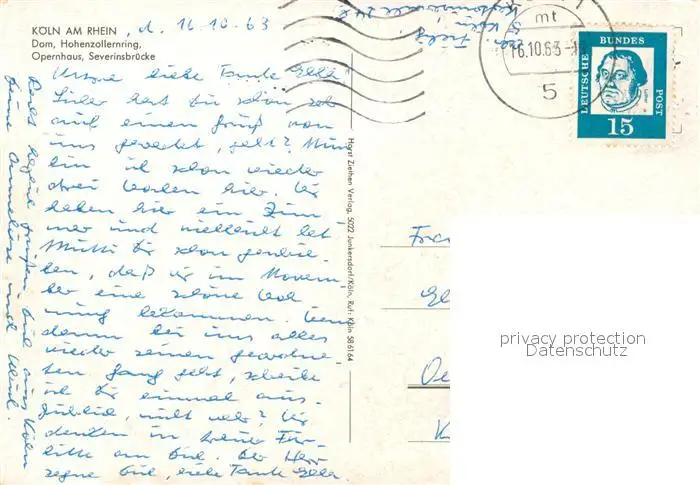 KÖLN AM RHEIN, d. 16-10-63
Dom, Hohenzollernring,
Opernhaus, Severinsbrücke
Unsere liebe Tante Ella!
Sicher hast Du schon
auf einen Gruß von
uns gewartet, gelt? Nun
bin ich schon wieder
drei Wochen hier. Wir
haben hier ein Zim-
mer und vielleicht hat
Mutti Dir schon geschrie-
ben, daß wir im Novem-
ber eine schöne Woh-
nung bekommen. Wenn
dann bei uns alles
wieder seinen gewohn-
ten Gang geht, schreibe
ich Dir einmal aus-
führlich, nicht wahr? Wir
denken in treuer Für-
bitte an Dich. Der Herr
segne Dich, liebe Tante Ella.
Recht herzlich grüßen Dich aus Köln
Deine Anneliese und
Horst Ziethen Verlag, 5022 Junkersdorf/Köln, Ruf: Köln 58 61 64
5 Köln
mt
16.10.63-1
5
DEUTSCHE
BUNDES
POST
15
privacy protection
Datenschutz